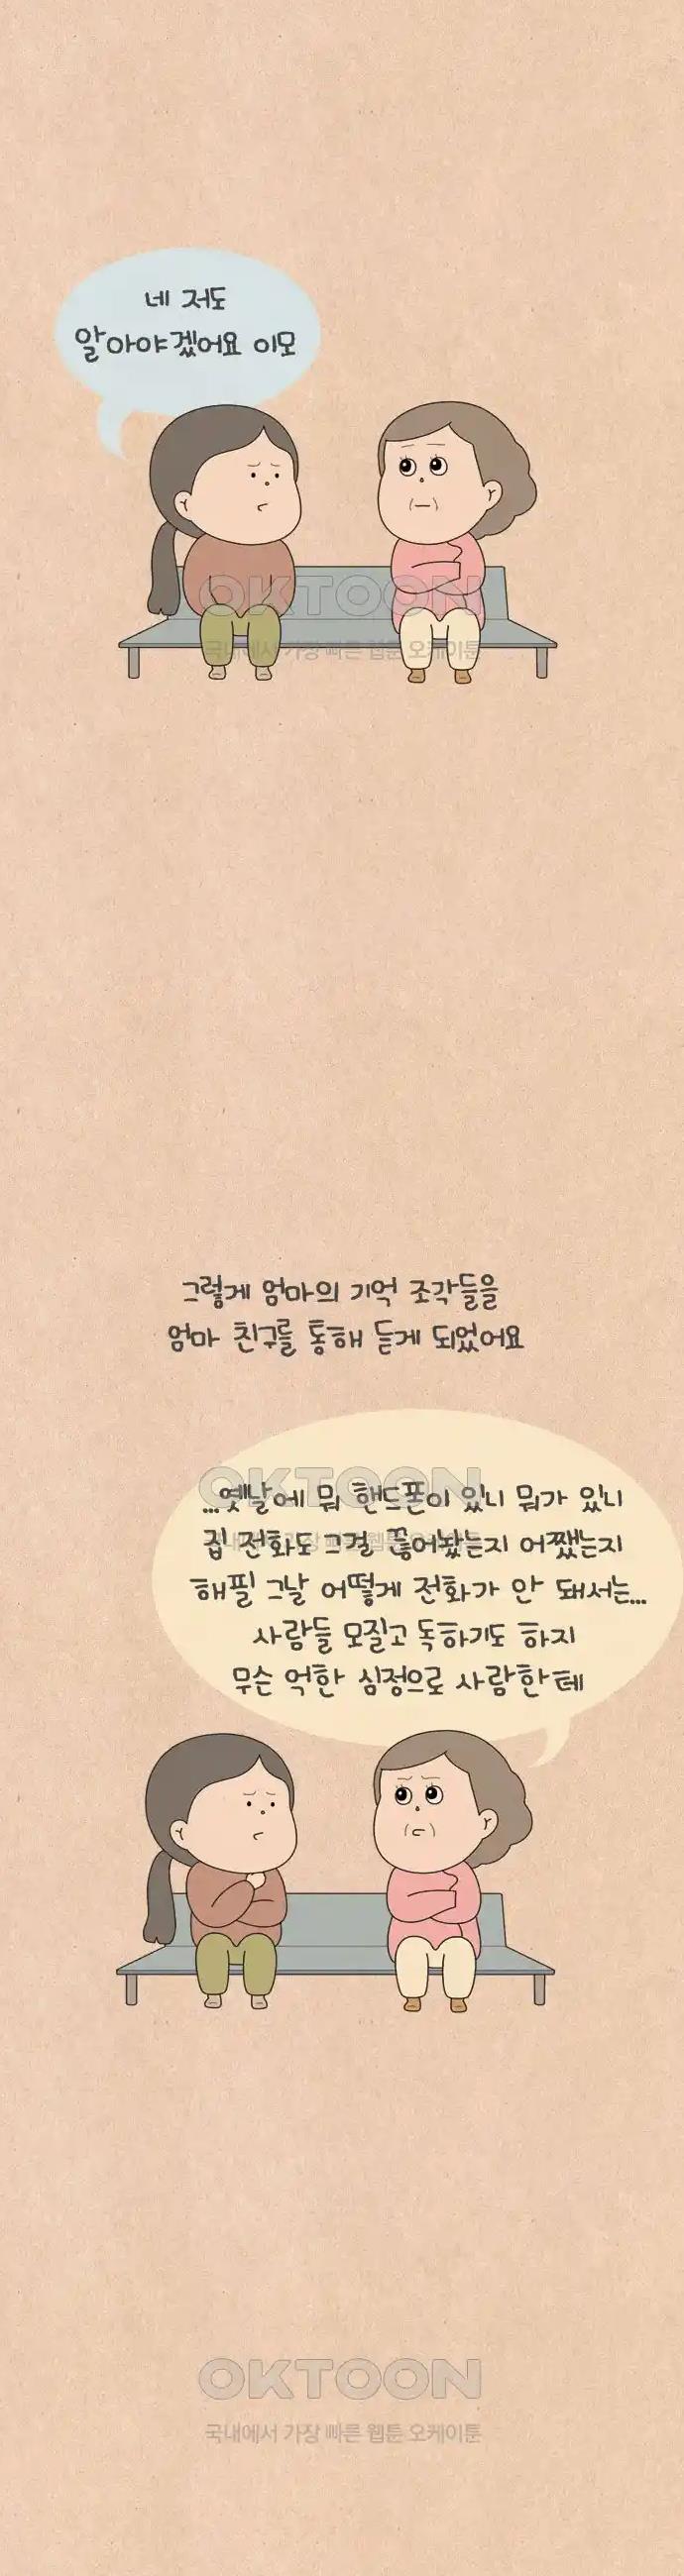 네 저도
알아야겠어요 이모
OKTOON
국내에서 가장 빠른 웹툰 오케이툰
그렇게 엄마의 기억 조각들을
엄마 친구를 통해 듣게 되었어요
OKTOON
...옛날에 뭐 핸드폰이 있니 뭐가 있니
국내에서 가장 빠른 웹툰 오케이툰
집 전화도 그걸 끊어놨는지 어쨌는지
해필 그날 어떻게 전화가 안 돼서는...
사람들 모질고 독하기도 하지
무슨 억한 심정으로 사람한테
OKTOON
국내에서 가장 빠른 웹툰 오케이툰